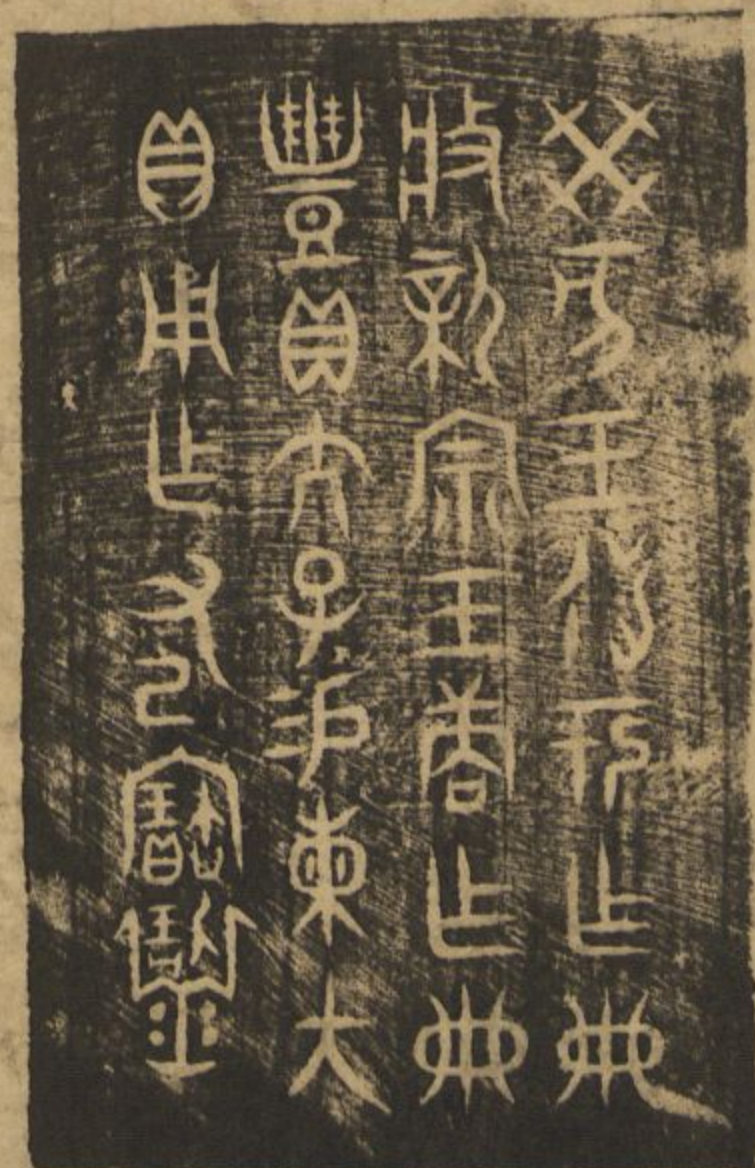 癸亥王𢓊于乍冊
般新宗王商乍冊
豐貝大子易東大
貝用乍父己寶